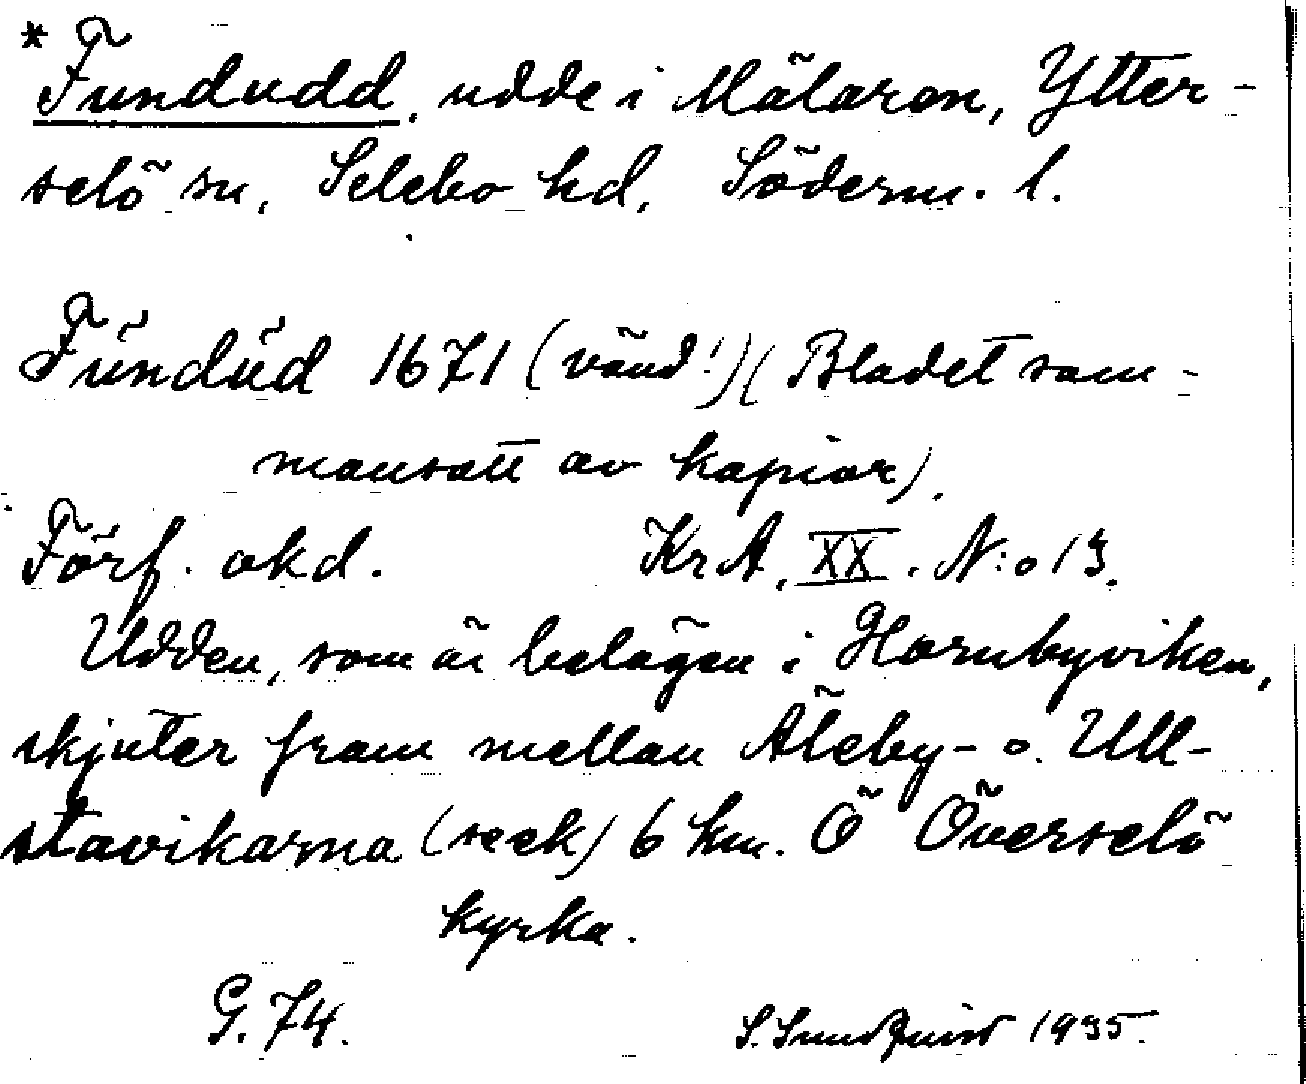 *Fundudd, udde i Mälaren, Ytter-
selö sn, Selebo hd, Söderm. l.
Fündüd 1671 (vänd!) (Bladet sam-
mansatt av kopior).
Förf. okd. KrA, XX. N:o 13.
Udden, som är belägen i Hornbyviken,
skjuter fram mellan Åleby- o. Ull-
stavikarna (se ek) 6 km. Ö Överselö
kyrka.
G. 74. S. Sundquist 1935.